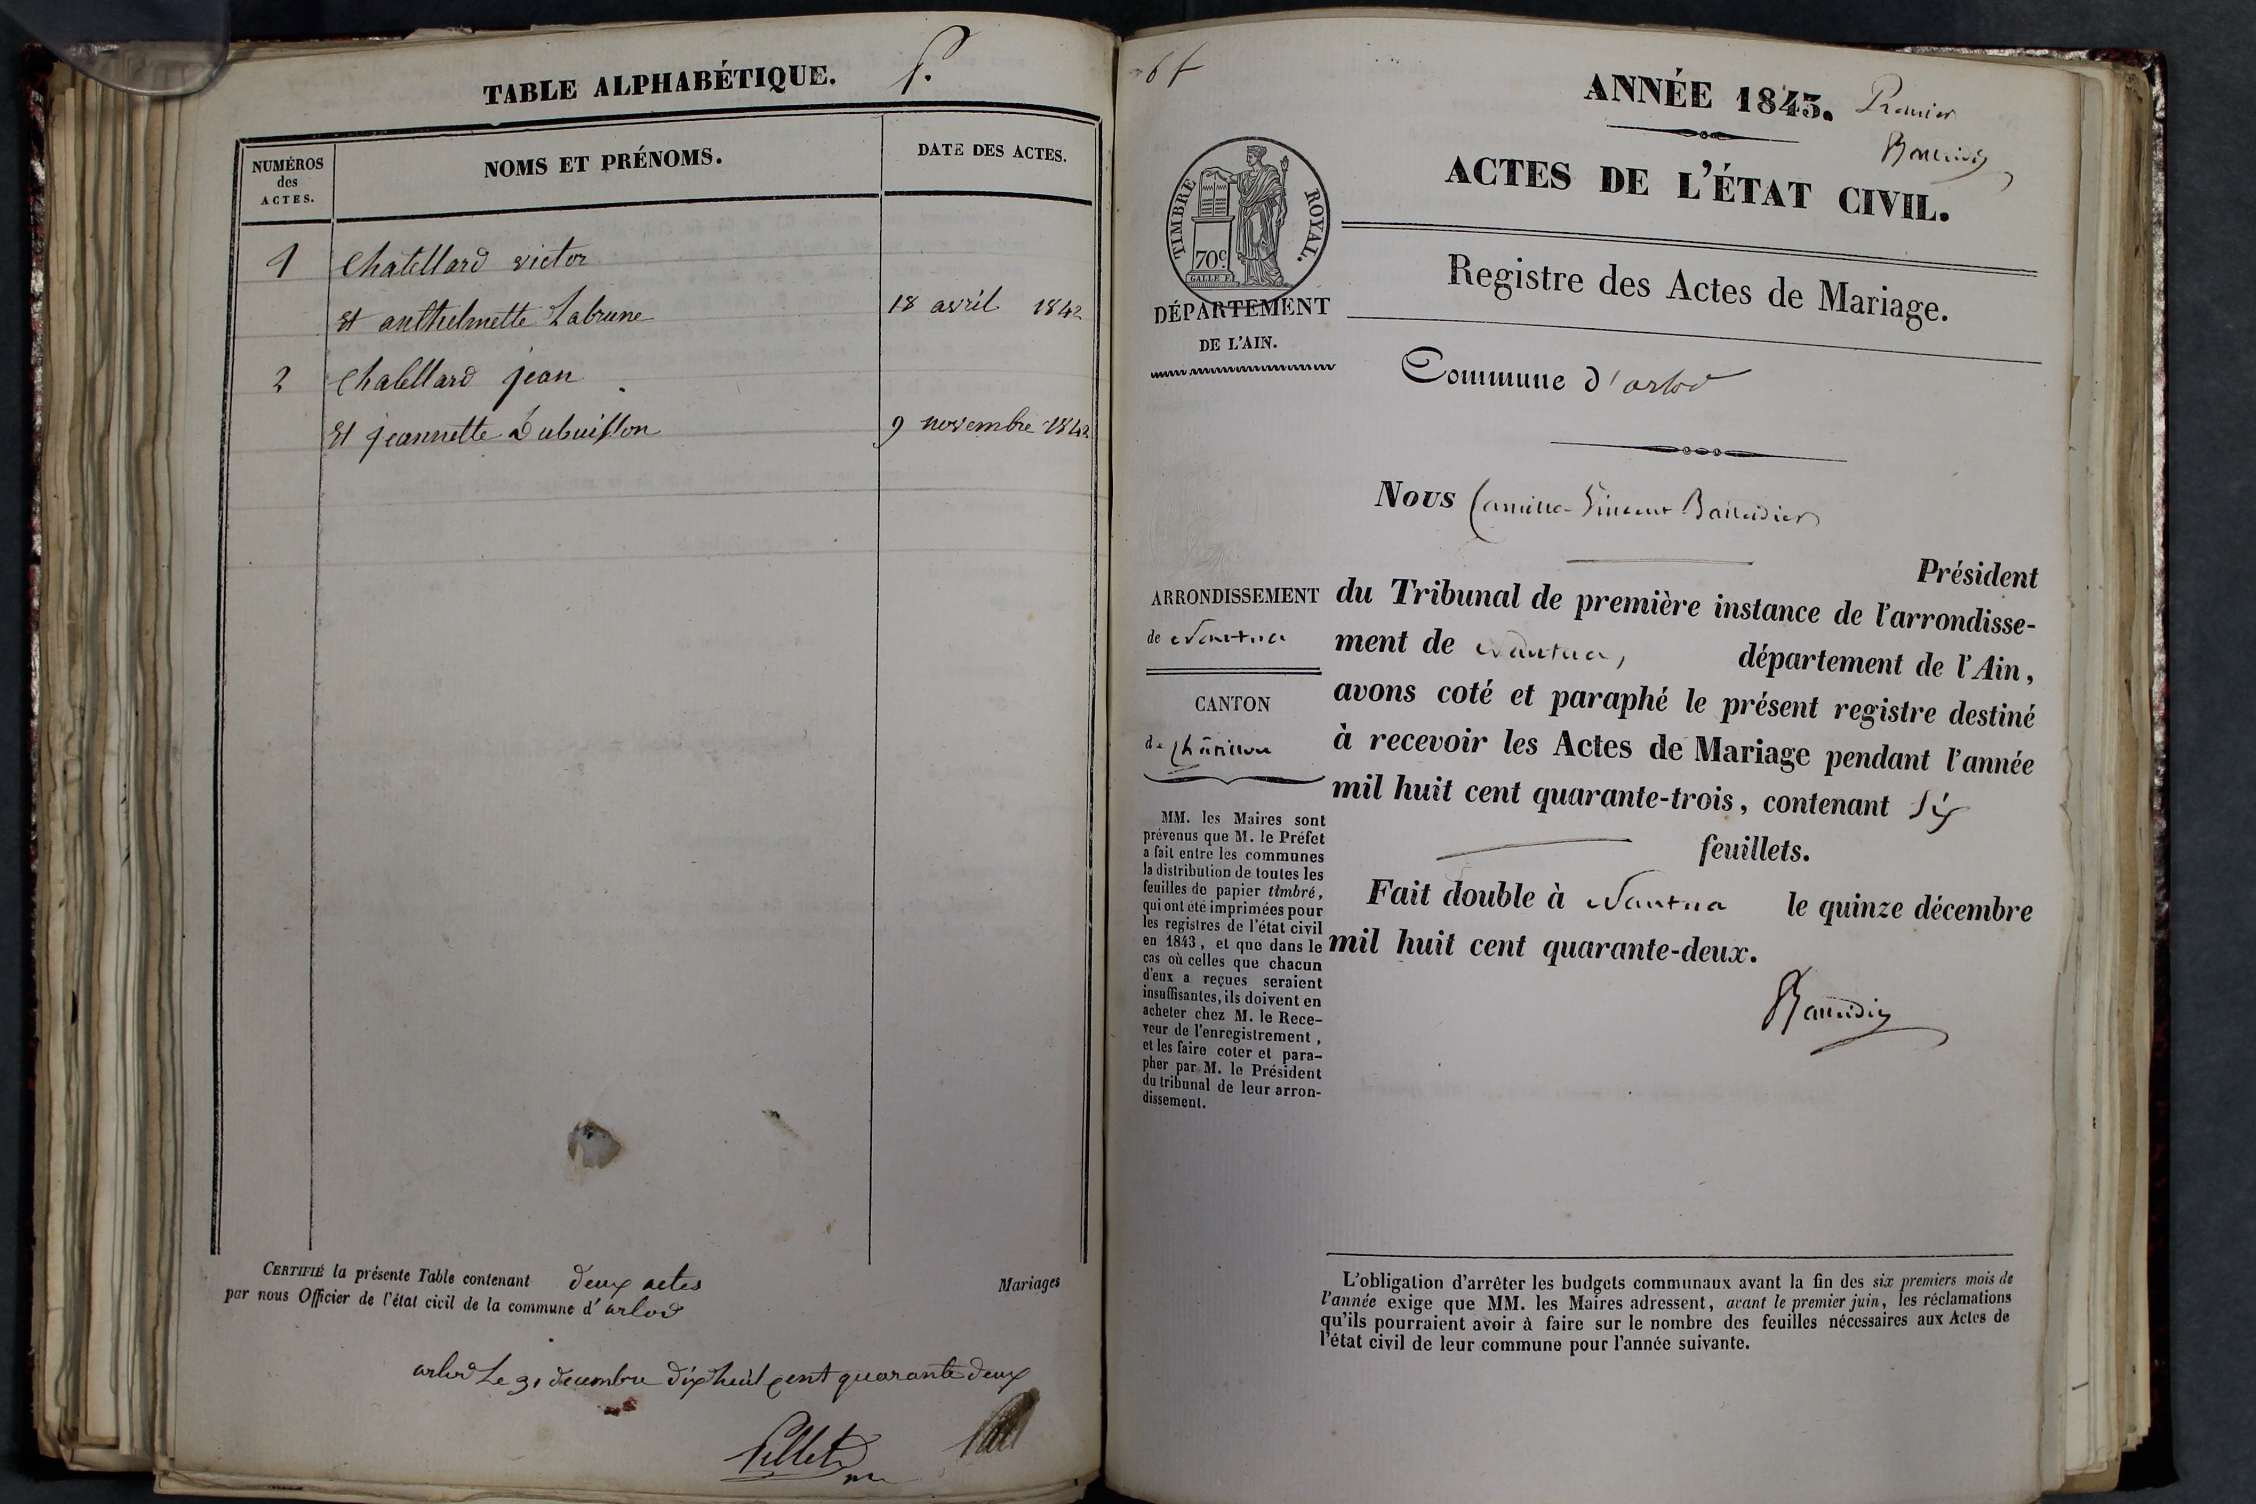 TABLE ALPHABÉTIQUE.
NUMÉROS
des
ACTES.
NOMS ET PRÉNOMS.
DATE DES ACTES.
1 Chatellard victor
Et anthelmette Labrune 18 avril 1842
2 Chatellard jean
Et jeannette Dubuisson 9 novembre 1842
CERTIFIÉ la présente Table contenant deux actes Mariages
par nous Officier de l'état civil de la commune d'arlod
arlod Le 31 decembre dix huit cent quarante deux
Pillet
6f
ANNÉE 1843. Premier
ACTES DE L'ÉTAT CIVIL.
TIMBRE ROYAL.
70c
GALLE F.
Registre des Actes de Mariage.
DÉPARTEMENT
DE L'AIN.
Commune d'arlod
Nous Camille-Vincent Baudier
Président
du Tribunal de première instance de l'arrondisse-
ment de Nantua, département de l'Ain,
avons coté et paraphé le présent registre destiné
à recevoir les Actes de Mariage pendant l'année
mil huit cent quarante-trois, contenant six
feuillets.
Fait double à Nantua le quinze décembre
mil huit cent quarante-deux.
ARRONDISSEMENT
de Nantua
CANTON
de Châtillon
MM. les Maires sont
prévenus que M. le Préfet
a fait entre les communes
la distribution de toutes les
feuilles de papier timbré,
qui ont été imprimées pour
les registres de l'état civil
en 1843, et que dans le
cas où celles que chacun
d'eux a reçues seraient
insuffisantes, ils doivent en
acheter chez M. le Rece-
veur de l'enregistrement,
et les faire coter et para-
pher par M. le Président
du tribunal de leur arron-
dissement.
L'obligation d'arrêter les budgets communaux avant la fin des six premiers mois de
l'année exige que MM. les Maires adressent, avant le premier juin, les réclamations
qu'ils pourraient avoir à faire sur le nombre des feuilles nécessaires aux Actes de
l'état civil de leur commune pour l'année suivante.